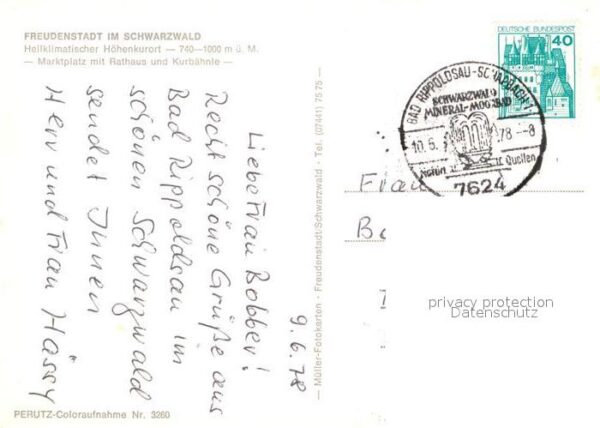 FREUDENSTADT IM SCHWARZWALD
Heilklimatischer Höhenkurort — 740—1000 m ü. M.
— Marktplatz mit Rathaus und Kurbähnle —
9.6.78
Liebe Frau Bobber!
Recht schöne Grüße aus
Bad Rippoldsau im
schönen Schwarzwald
sendet Ihnen
Herr und Frau Hässy
— Müller-Fotokarten · Freudenstadt/Schwarzwald · Tel. (07441) 75 75 —
DEUTSCHE BUNDESPOST
40
BAD RIPPOLDSAU-SCHAPBACH 1
SCHWARZWALD
MINERAL-MOORBAD
10.6. 78 -8
Quellen
7624
Frau
privacy protection
Datenschutz
PERUTZ-Coloraufnahme Nr. 3260